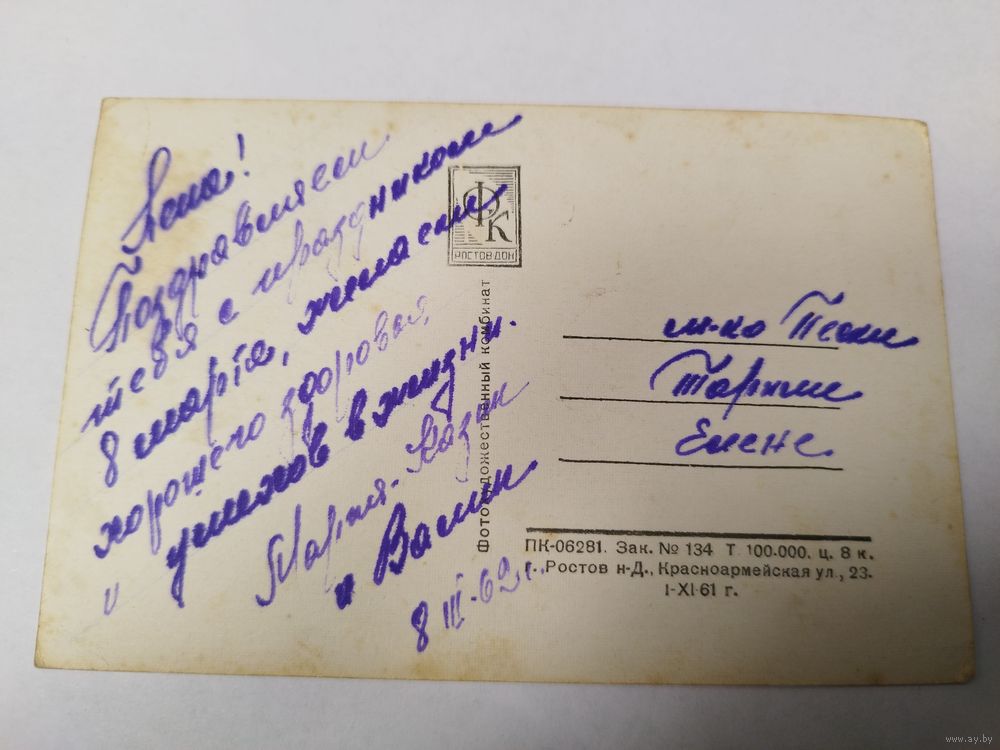 Лена!
Поздравляем
тебя с праздником
8 марта, желаем
хорошего здоровья,
и успехов в жизни.
и Валин
8 III-62 г.
ФК
РОСТОВ ДОН
Фотохудожественный комбинат
м-ко Пески
Елене
ПК-06281. Зак. № 134 Т. 100.000. ц. 8 к.
г. Ростов н-Д., Красноармейская ул., 23.
1-XI-61 г.
www.ay.by